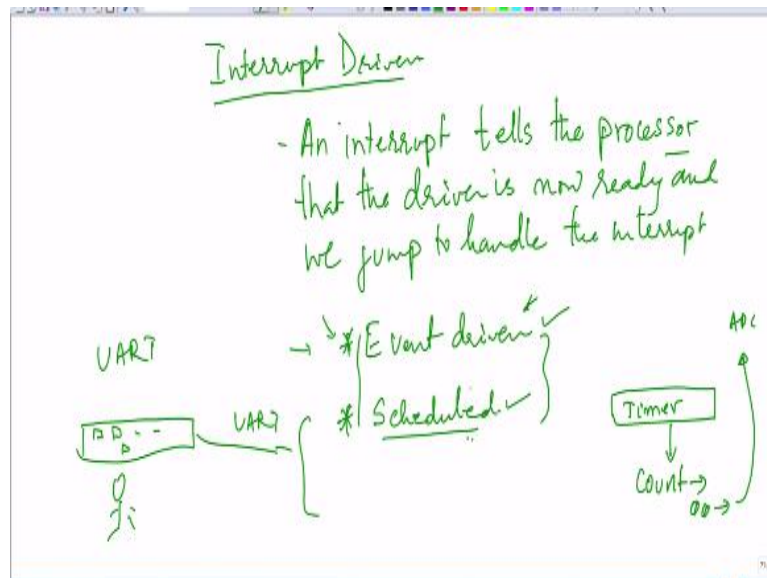 Interrupt Driven
- An interrupt tells the processor
that the driver is now ready and
we jump to handle the interrupt
UART
→ * Event driven
ADC
UART
* Scheduled
Timer
Count →
00 →